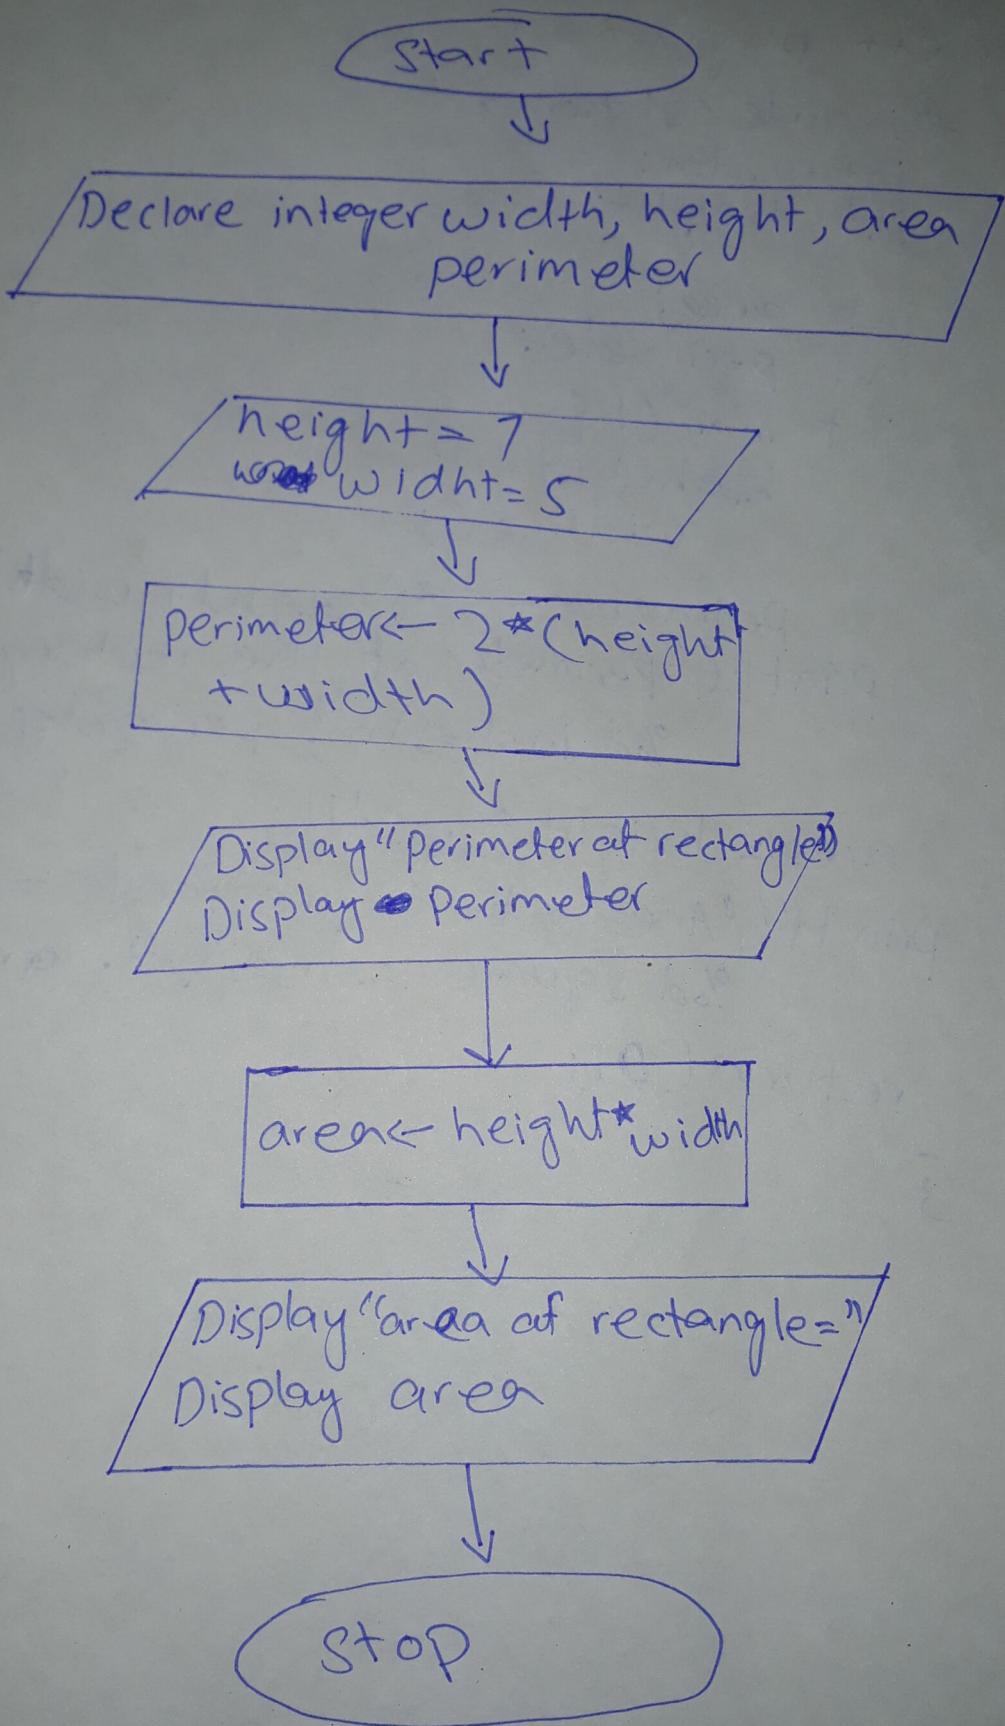 Start
Declare integer width, height, area
perimeter
height = 7
widht = 5
perimeter ← 2 * (height
+ width)
Display "Perimeter of rectangle="
Display Perimeter
area ← height * width
Display "area of rectangle="
Display area
Stop